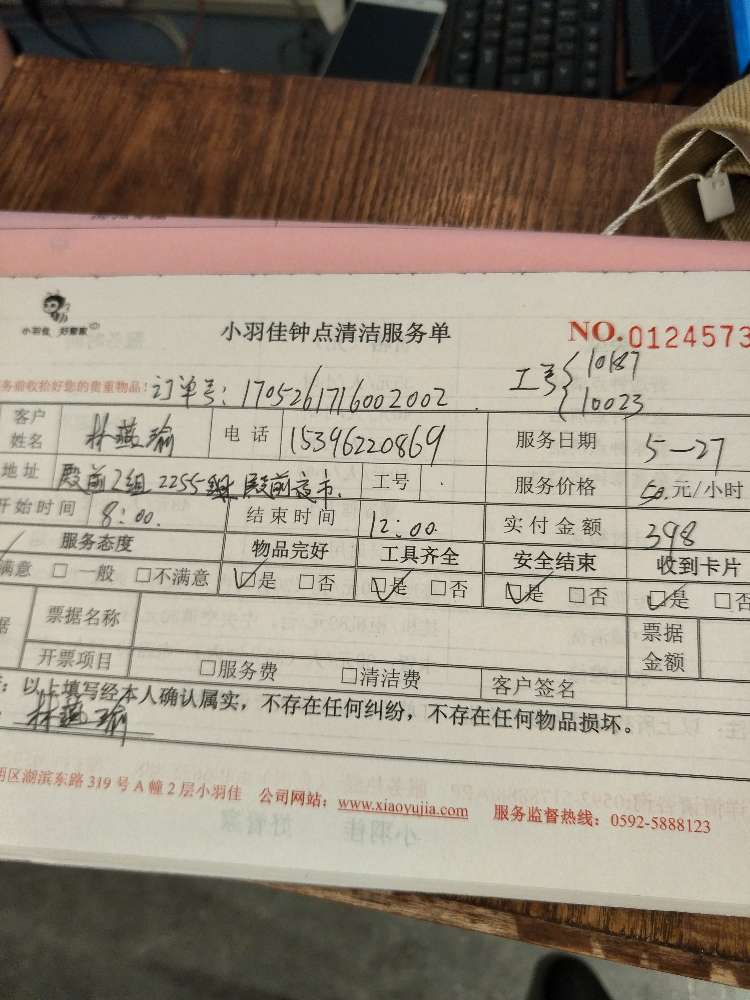 小羽佳 好管家
小羽佳钟点清洁服务单 NO.0124573
务前收拾好您的贵重物品! 订单号: 1705261716002002. 工号 10187
10023
客户姓名 林燕瑜 电话 15396220869 服务日期 5-27
地址 殿前2组2255 殿前夜市. 工号 服务价格 50.元/小时
开始时间 8:00. 结束时间 12:00. 实付金额 398
服务态度 物品完好 工具齐全 安全结束 收到卡片
满意 □一般 □不满意 ☑是 □否 ☑是 □否 ☑是 □否 ☑是 □否
据 票据名称 票据金额
开票项目 □服务费 □清洁费 客户签名
:以上填写经本人确认属实,不存在任何纠纷,不存在任何物品损坏。
林燕瑜
明区湖滨东路319号A幢2层小羽佳 公司网站:www.xiaoyujia.com 服务监督热线:0592-5888123